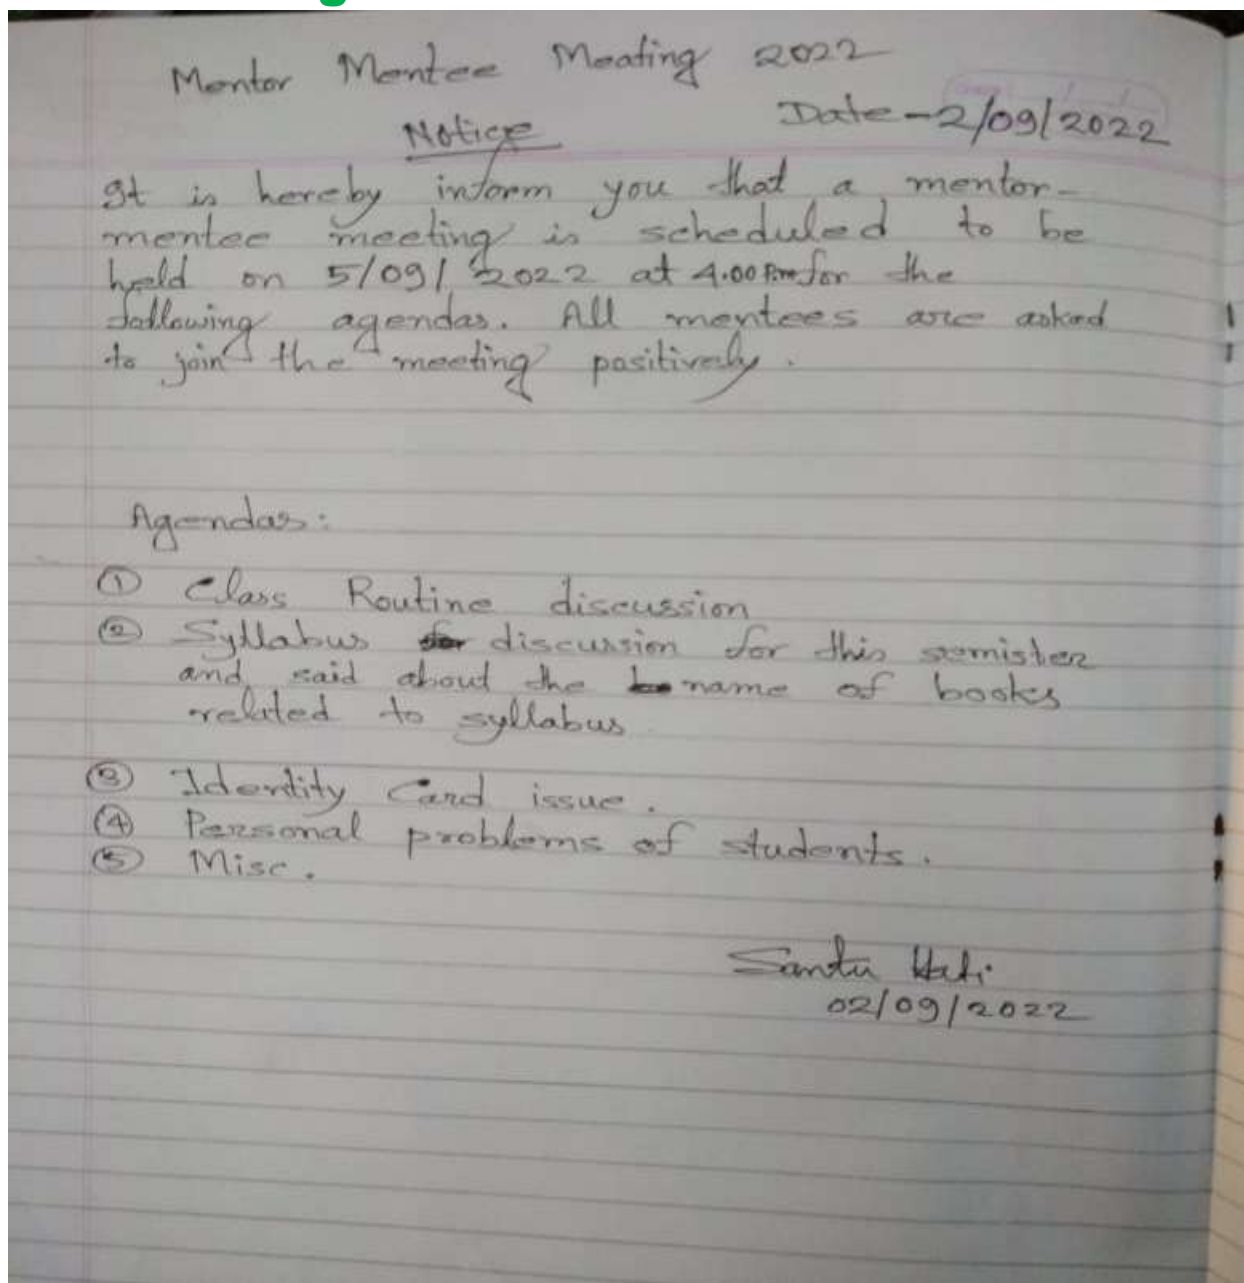 Mentor Mentee Meating 2022
Date - 2/09/2022
Notice
It is hereby inform you that a mentor-
mentee meeting is scheduled to be
held on 5/09/2022 at 4.00 Pm for the
following agendas. All mentees are asked
to join the meeting positively.
Agendas:
① Class Routine discussion
② Syllabus for discussion for this semister
and said about the name of books
related to syllabus
③ Identity Card issue.
④ Personal problems of students.
⑤ Misc.
Santu Hati
02/09/2022